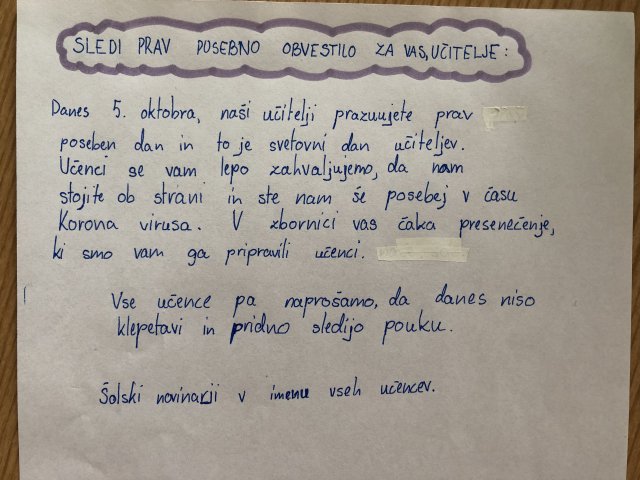 SLEDI PRAV POSEBNO OBVESTILO ZA VAS, UČITELJE:
Danes 5. oktobra, naši učitelji prazuujete prav
poseben dan in to je svetovni dan učiteljev.
Učenci se vam lepo zahvaljujemo, da nam
stojite ob strani in ste nam še posebej v času
Korona virusa. V zbornici vas čaka presenečenje,
ki smo vam ga pripravili učenci.
Vse učence pa naprošamo, da danes niso
klepetavi in pridno sledijo pouku.
Šolski novinarji v imenu vseh učencev.